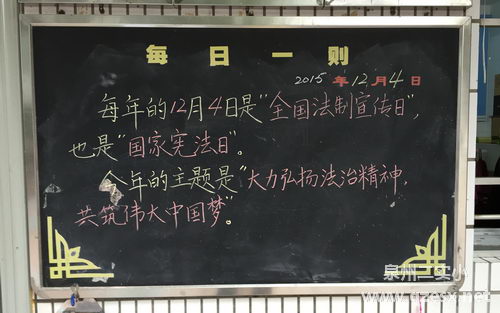 每日一则
2015年12月4日
每年的12月4日是“全国法制宣传日”，
也是“国家宪法日”。
今年的主题是“大力弘扬法治精神，
共筑伟大中国梦”。
泉州一实小